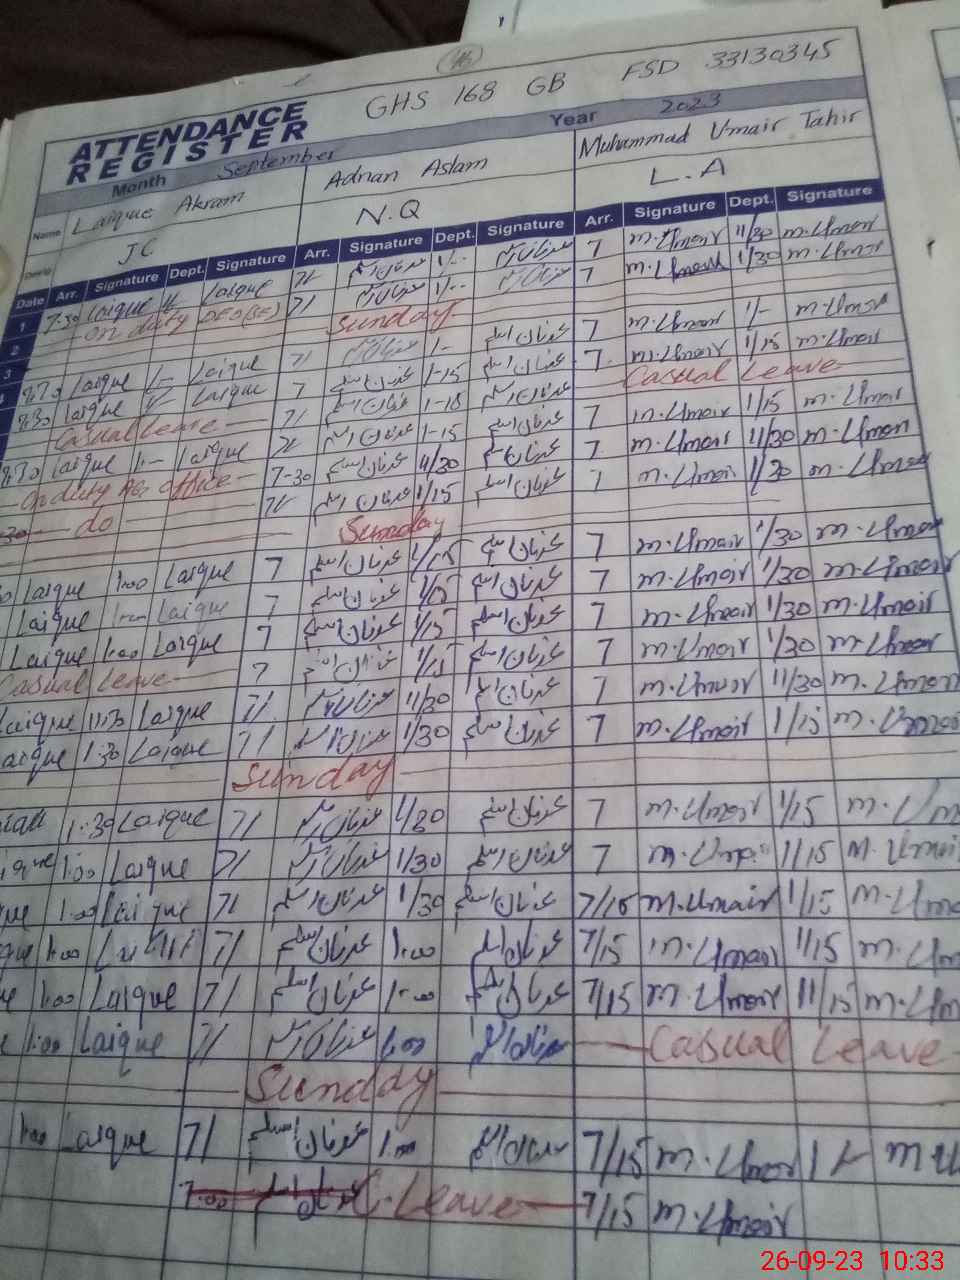 46
GHS 168 GB FSD 33130345
ATTENDANCE
REGISTER
Month September Year 2023
Name Laique Akram Adnan Aslam Muhammad Umair Tahir
JC N.Q L.A
Date Arr. Signature Dept. Signature Arr. Signature Dept. Signature Arr. Signature Dept. Signature
1 7-30 Laique Laique عدنان اسلم عدنان اسلم 7 M.Umair 11/30 M.Umair
2 on duty DEO(SE) عدنان اسلم عدنان اسلم 7 M.Umair 1/30 M.Umair
3 Sunday
4 Laique 1- Laique عدنان اسلم 1- عدنان اسلم 7 M.Umair 1/- M.Umair
Laique Laique 7 عدنان اسلم 1-15 عدنان اسلم 7 M.Umair 1/15 M.Umair
Casual Leave عدنان اسلم عدنان اسلم Casual Leave
Laique 1- Laique عدنان اسلم 1-15 عدنان اسلم 7 M.Umair 1/15 M.Umair
on duty office 7-30 عدنان اسلم 11/30 عدنان اسلم 7 M.Umair 11/30 M.Umair
do عدنان اسلم 1/15 عدنان اسلم 7 M.Umair 1/30 M.Umair
Sunday
Laique 1:00 Laique 7 عدنان اسلم 1/15 عدنان اسلم 7 M.Umair 1/30 M.Umair
Laique 1:00 Laique 7 عدنان اسلم 1/15 عدنان اسلم 7 M.Umair 1/30 M.Umair
Laique 1:00 Laique 7 عدنان اسلم 1/15 عدنان اسلم 7 M.Umair 1/30 M.Umair
Casual Leave 7 عدنان اسلم 1/15 عدنان اسلم 7 M.Umair 1/30 M.Umair
Laique 11:30 Laique 7/ عدنان اسلم 11/30 عدنان اسلم 7 M.Umair 11/30 M.Umair
Laique 1:30 Laique 7/ عدنان اسلم 1/30 عدنان اسلم 7 M.Umair 1/15 M.Umair
Sunday
1:30 Laique 7/ عدنان اسلم 1/30 عدنان اسلم 7 M.Umair 1/15 M.Um
ique 1:00 Laique 7/ عدنان اسلم 1/30 عدنان اسلم 7 M.Umair 1/15 M.Umair
que 1:00 Laique 7/ عدنان اسلم 1/30 عدنان اسلم 7/15 M.Umair 1/15 M.Uma
que 1:00 7/ عدنان اسلم 1:00 عدنان اسلم 7/15 M.Umair 1/15 M.Um
e 1:00 Laique 7/ عدنان اسلم 1:00 عدنان اسلم 7/15 M.Umair 11/15 M.Um
e 1:00 Laique 7/ عدنان اسلم 1:00 عدنان اسلم Casual Leave
Sunday
1:00 Laique 7/ عدنان اسلم 1:00 عدنان اسلم 7/15 M.Umair 1/- M.U
7:00 عدنان اسلم C.Leave 7/15 M.Umair
26-09-23 10:33